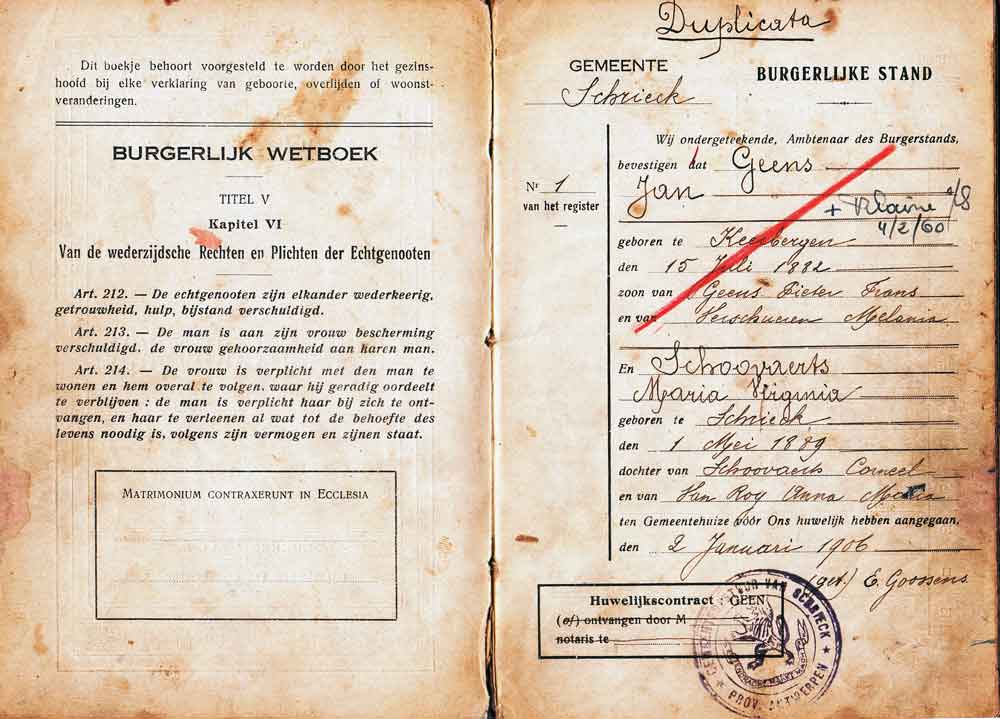 Dit boekje behoort voorgesteld te worden door het gezins-
hoofd bij elke verklaring van geboorte, overlijden of woonst-
veranderingen.
BURGERLIJK WETBOEK
TITEL V
Kapitel VI
Van de wederzijdsche Rechten en Plichten der Echtgenooten
Art. 212. — De echtgenooten zijn elkander wederkeerig,
getrouwheid, hulp, bijstand verschuldigd.
Art. 213. — De man is aan zijn vrouw bescherming
verschuldigd. de vrouw gehoorzaamheid aan haren man.
Art. 214. — De vrouw is verplicht met den man te
wonen en hem overal te volgen. waar hij geradig oordeelt
te verblijven : de man is verplicht haar bij zich te ont-
vangen, en haar te verleenen al wat tot de behoefte des
levens noodig is, volgens zijn vermogen en zijnen staat.
MATRIMONIUM CONTRAXERUNT IN ECCLESIA
Duplicata
GEMEENTE
Schrieck
BURGERLIJKE STAND
Nr 1
van het register
Wij ondergeteekende, Ambtenaar des Burgerstands,
bevestigen dat Geens
Jan
+
4/2/60
geboren te Keerbergen
den 15 Juli 1882
zoon van Geens Pieter Frans
en van Verschueren Melania
En Schoovaerts
Maria Virginia
geboren te Schrieck
den 1 Mei 1889
dochter van Schoovaerts Corneel
en van Van Roy Anna Maria
ten Gemeentehuize vóór Ons huwelijk hebben aangegaan,
den 2 Januari 1906
(get.) E. Goossens
Huwelijkscontract : GEEN
(of) ontvangen door M
notaris te
VAN SCHRIECK
PROV. ANTWERPEN